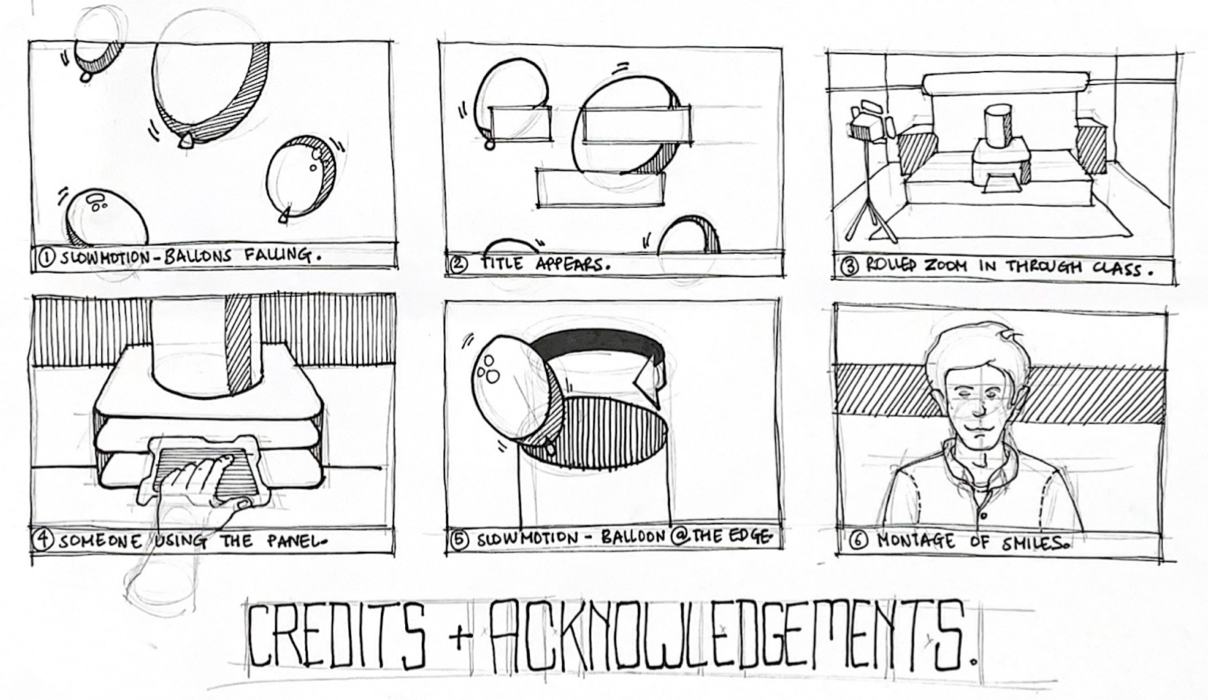 ① SLOWMOTION - BALLONS FALLING.
② TITLE APPEARS.
③ ROLLED ZOOM IN THROUGH CLASS.
④ SOMEONE USING THE PANEL.
⑤ SLOWMOTION - BALLOON @ THE EDGE
⑥ MONTAGE OF SMILES.
CREDITS + ACKNOWLEDGEMENTS.